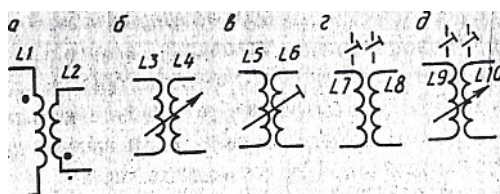 а б в г д
L1 L2 L3 L4 L5 L6 L7 L8 L9 L10